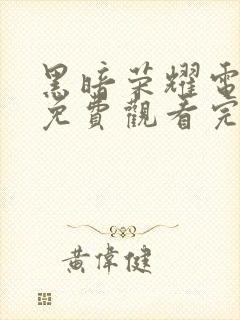 黑暗荣耀電
免費觀看完
黃偉健